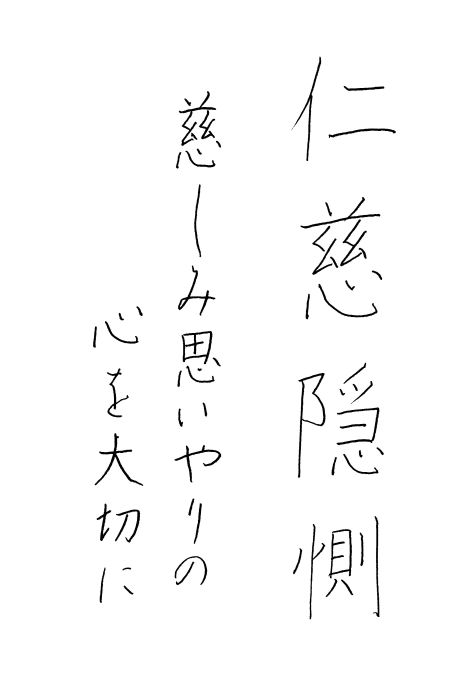 仁慈隠惻
慈しみ思いやりの
心を大切に